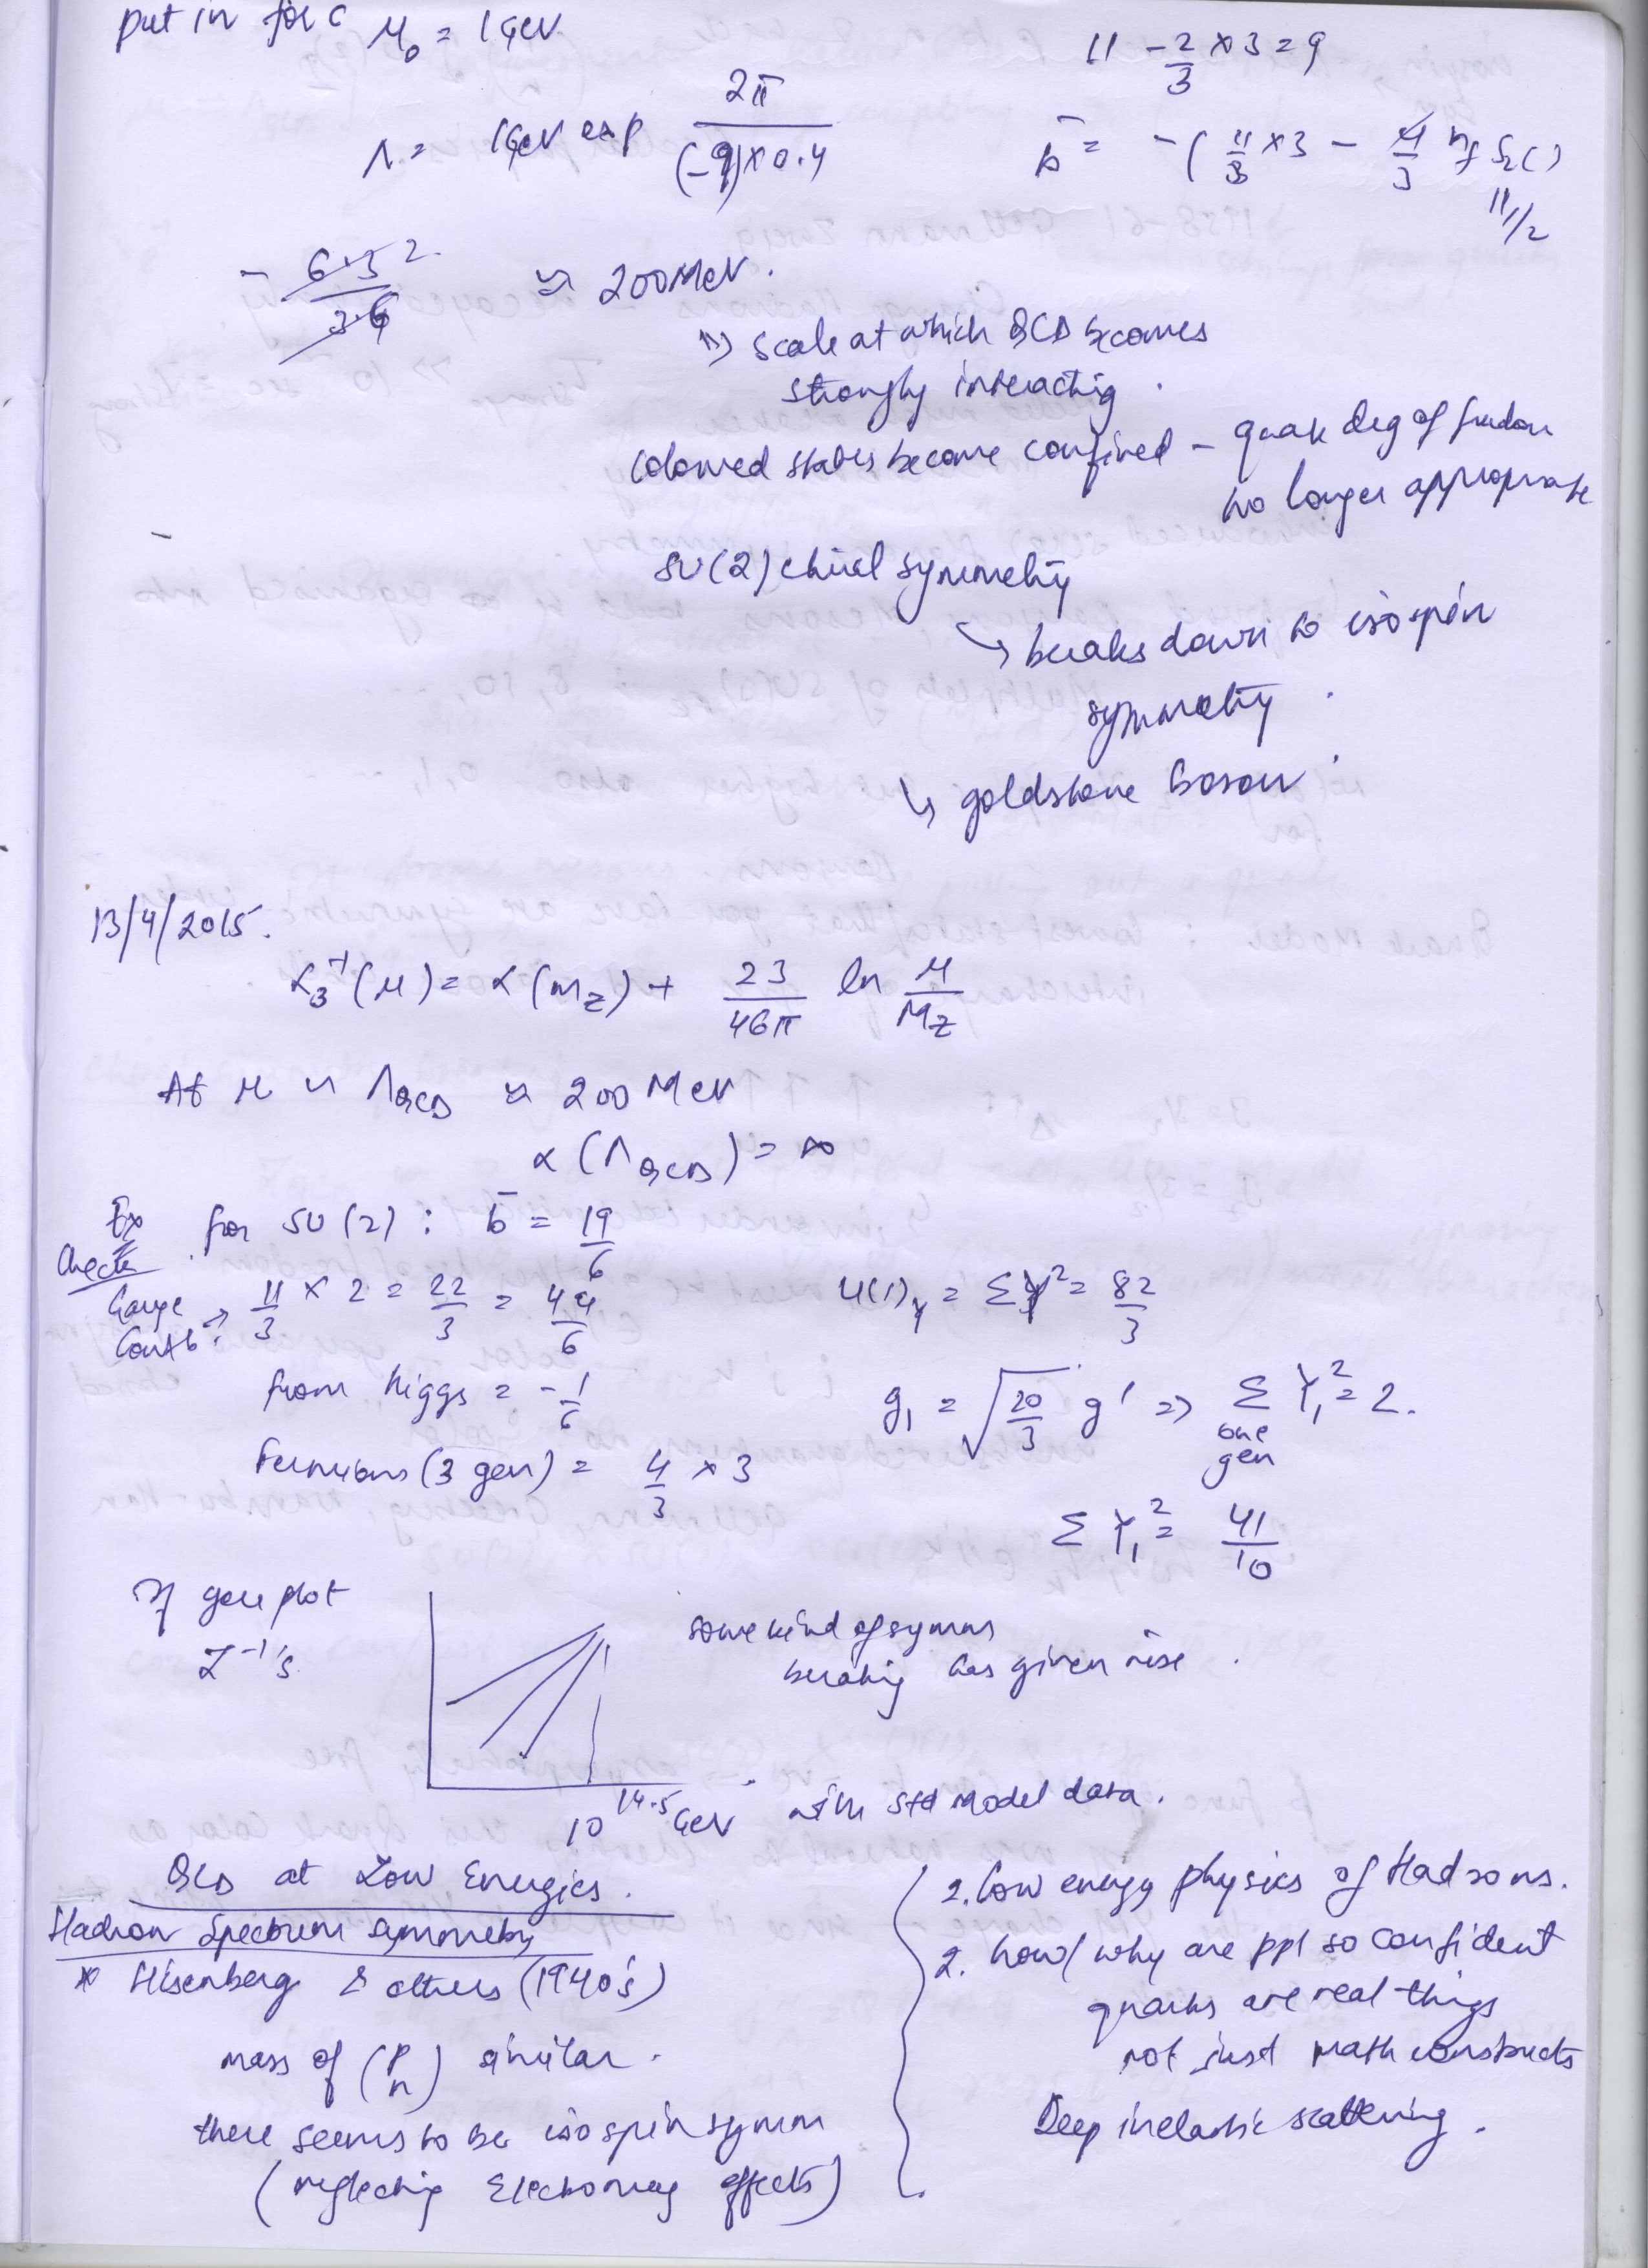 put in for c μ₀ = 1GeV
11 - 2/3 × 3 = 9
Λ = 1GeV exp 2π / (-9)×0.4
b̄ = -( 11/3 × 3 - 4/3 n_f S₂( )
11/2
- 6.3 2 / 3.6
≈ 200 MeV.
⇒ scale at which QCD becomes
strongly interacting.
coloured states become confined - quark deg of freedom
no longer appropriate
SU(2) chiral symmetry
↳ breaks down to isospin
symmetry.
↳ goldstone boson.
13/4/2015.
α₃⁻¹(μ) = α(m_Z) + 23/46π ln μ/M_Z
At μ ~ Λ_QCD ≈ 200 MeV
α(Λ_QCD) = ∞
Ex for SU(2) : b̄ = 19/6
Check
Gauge Contb → 11/3 × 2 = 22/3 = 44/6
U(1)_Y = ΣY² = 82/3
from higgs = -1/6
g₁ = √(20/3) g' ⇒ Σ Y₁² = 2.
one
gen
Fermions (3 gen) = 4/3 × 3
Σ Y₁² = 41/10
If you plot
α⁻¹'s
some kind of symm
breaking has given rise.
10^14.5 GeV with Std Model data.
QCD at Low Energies.
Hadron Spectrum Symmetry
* Hisenberg & others (1940's)
mass of (p n) similar.
there seems to be isospin symm
(neglecting Electromag effects)
2. low energy physics of Hadrons.
2. how/why are ppl so confident
quarks are real things
not just math constructs
Deep inelastic scattering.